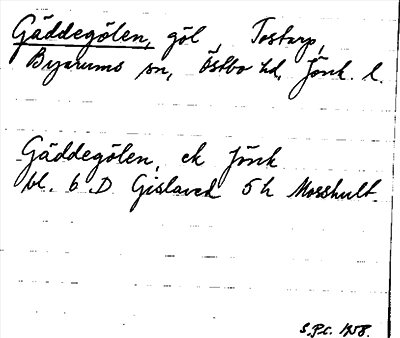 Gäddegölen, göl, Tostarp,
Byarums sn, Östbo hd, Jönk. l.
Gäddegölen, ek Jönk
bl. 6 D Gislaved 5 h Mosshult.
S.P.C. 1958.